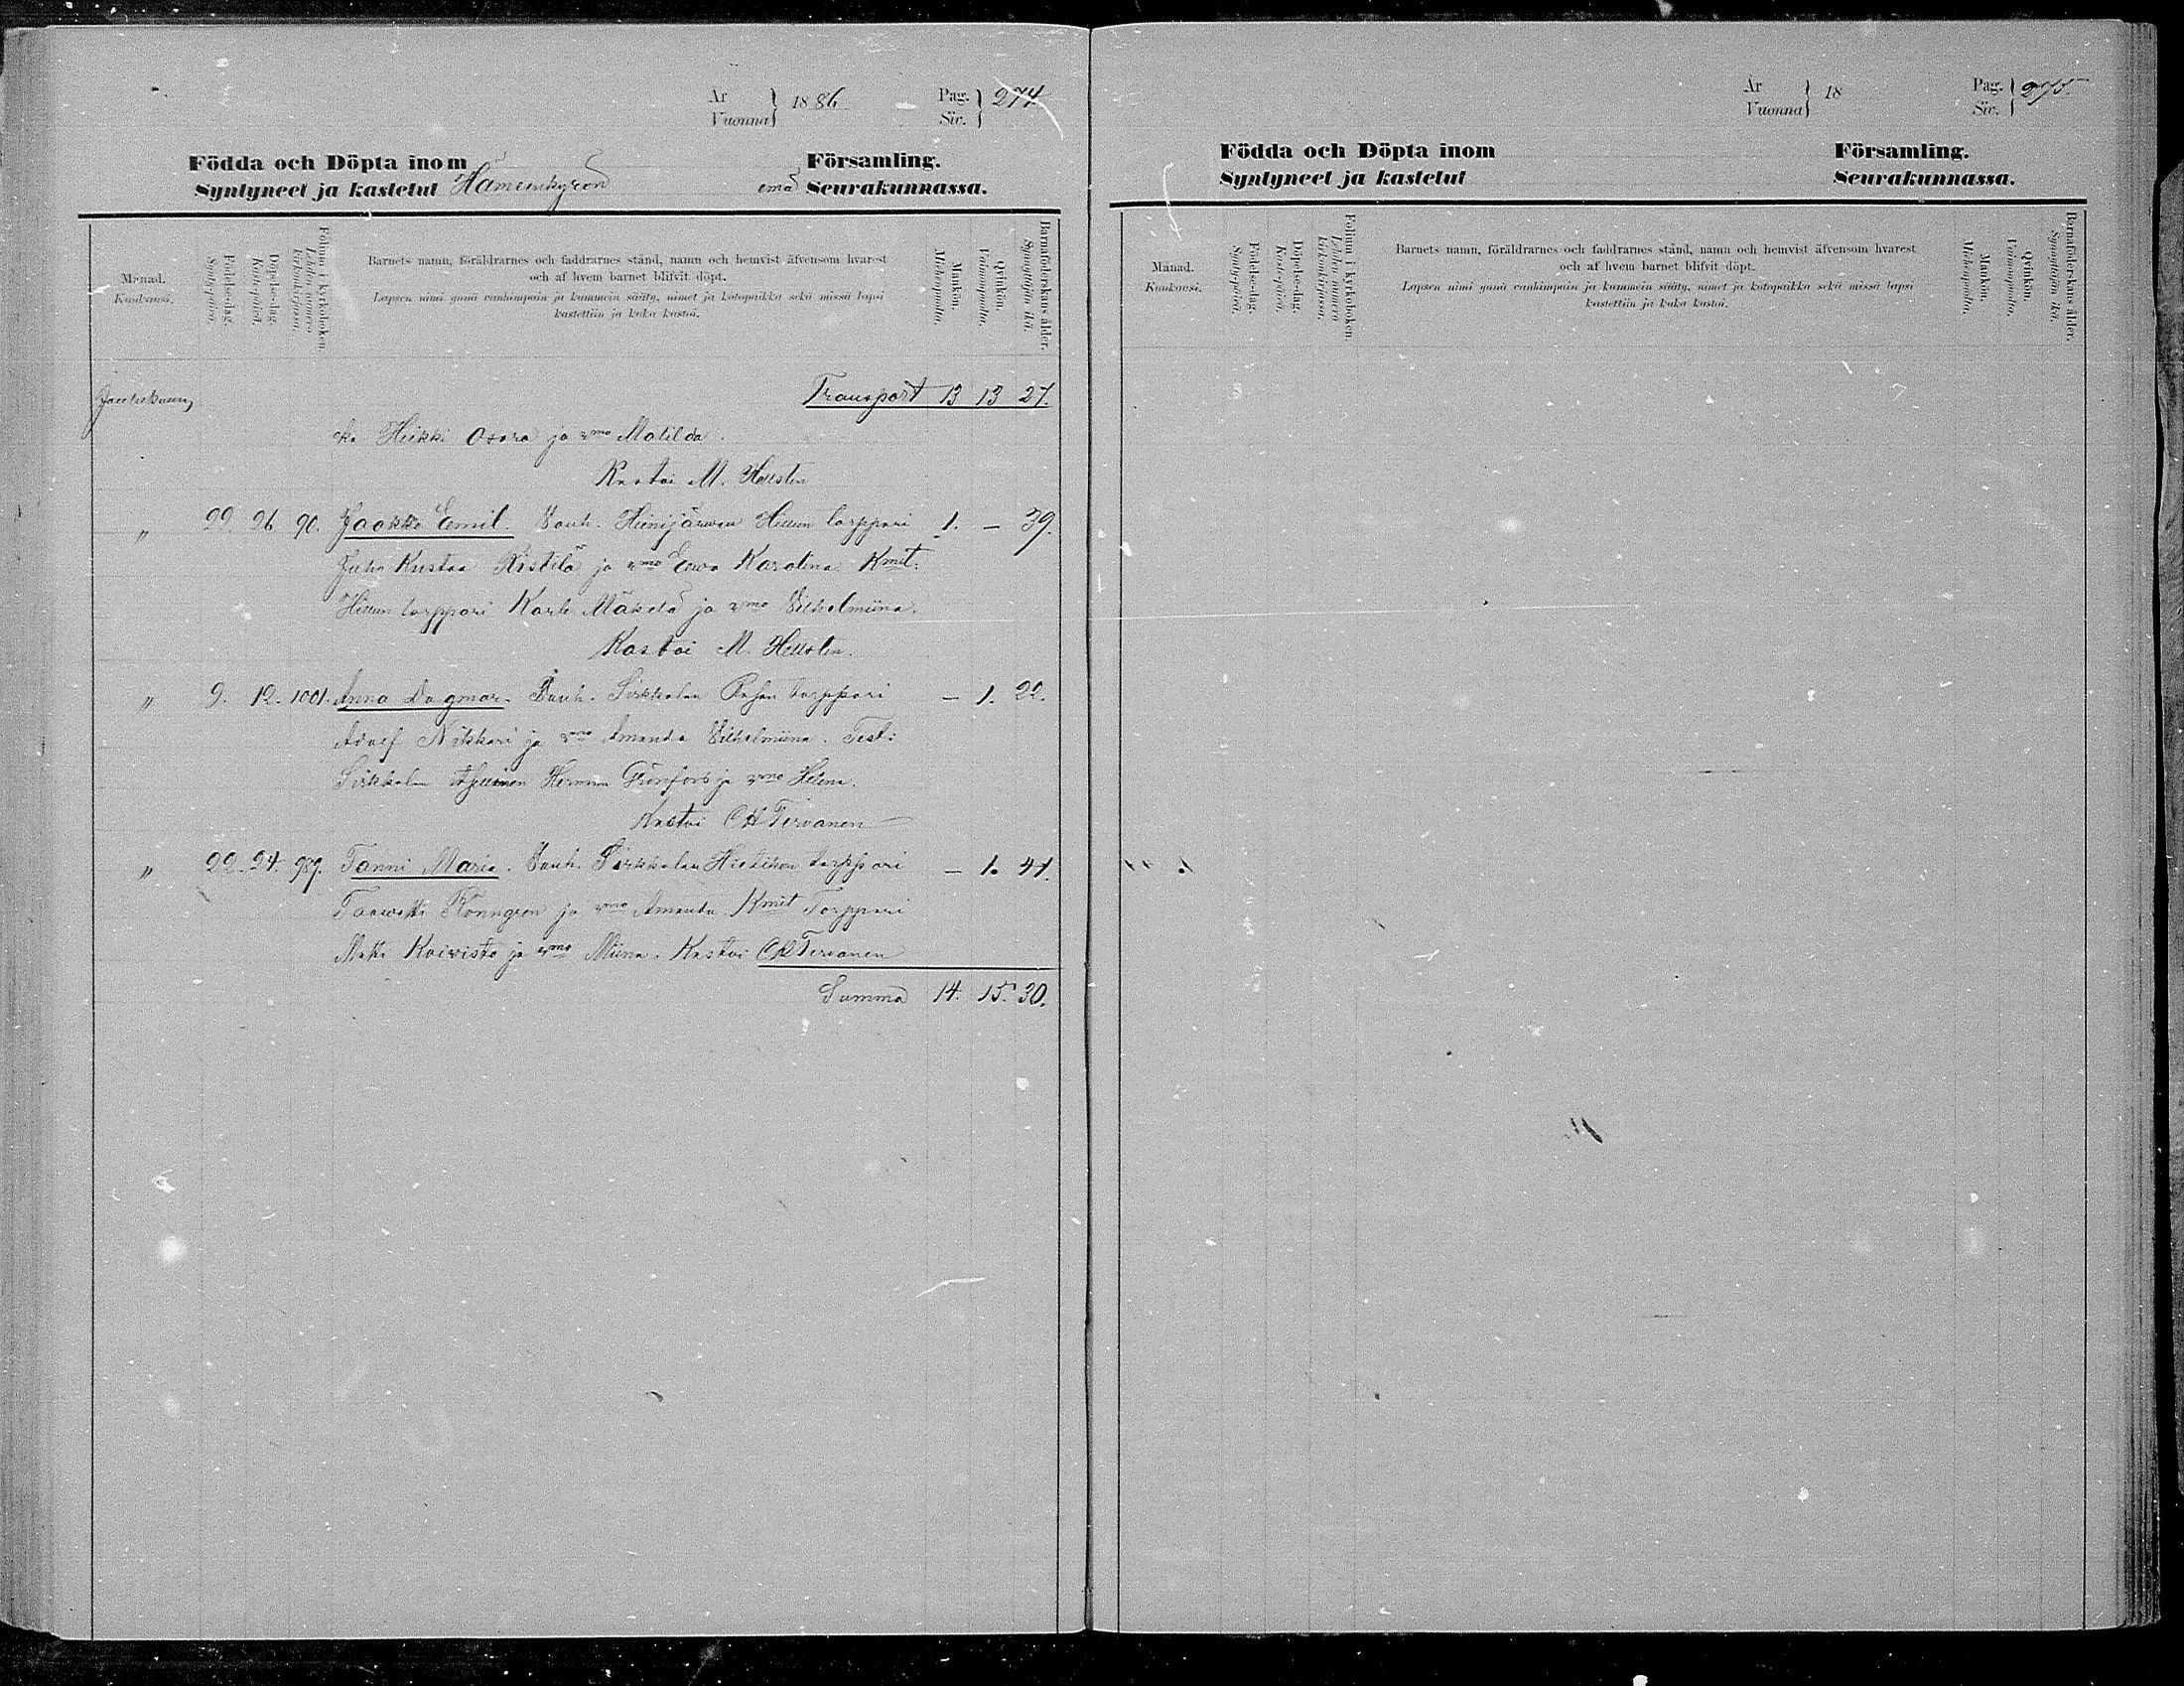 År
Vuonna } 1886
Pag.
Siv. } 274
Födda och Döpta inom Församling.
Syntyneet ja kastetut Hämeenkyrön emä Seurakunnassa.
Månad.
Kuukausi.
Födelse-dag.
Syntypäivä.
Döpelse-dag.
Kastepäivä.
Folium i kyrkoboken.
Lehden numero kirkonkirjassa.
Barnets namn, föräldrarnes och faddrarnes stånd, namn och hemvist äfvensom hvarest
och af hvem barnet blifvit döpt.
Lapsen nimi ynnä vanhimpain ja kummein sääty, nimet ja kotopaikka sekä missä lapsi
kastettiin ja kuka kastoi.
Mankön.
Miehenpuolta.
Qvinkön.
Vaimonpuolta.
Barnaföderskans ålder.
Synnyttäjän ikä.
Transport 13 13 27.
Heikki Osara ja vmo Matilda.
Kastoi M. Hellsten
" 29. 26 90. Jaakko Eemil. Vanh. Heinijärwen Hillun torppari 1. — 39.
Juho Kustaa Ristilä ja vmo Eewa Karolina Kmit:
Hillun torppari Karle Mäkelä ja vmo Vilhelmiina.
Kastoi M. Hellsten.
" 9. 12. 1001. Anna Dagmar. Vanh. Sirkkalan torppari — 1. 22.
Adolf Nikkari ja vmo Amanda Vilhelmiina. Test:
Sirkkalan Herman Grönfors ja vmo Helena.
Kastoi CH Tervanen
" 22. 24. 989. Fanni Maria. Vanh. Sirkkalan torppari — 1. 41.
Taawetti ja vmo Amanda Kmit Torppari
Matti Koivisto ja vmo Miina. Kastoi CH Tervanen
Summa 14. 15. 30.
År
Vuonna } 18
Pag.
Siv. } 275.
Födda och Döpta inom Församling.
Syntyneet ja kastetut Seurakunnassa.
Månad.
Kuukausi.
Födelse-dag.
Syntypäivä.
Döpelse-dag.
Kastepäivä.
Folium i kyrkoboken.
Lehden numero kirkonkirjassa.
Barnets namn, föräldrarnes och faddrarnes stånd, namn och hemvist äfvensom hvarest
och af hvem barnet blifvit döpt.
Lapsen nimi ynnä vanhimpain ja kummein sääty, nimet ja kotopaikka sekä missä lapsi
kastettiin ja kuka kastoi.
Mankön.
Miehenpuolta.
Qvinkön.
Vaimonpuolta.
Barnaföderskans ålder.
Synnyttäjän ikä.